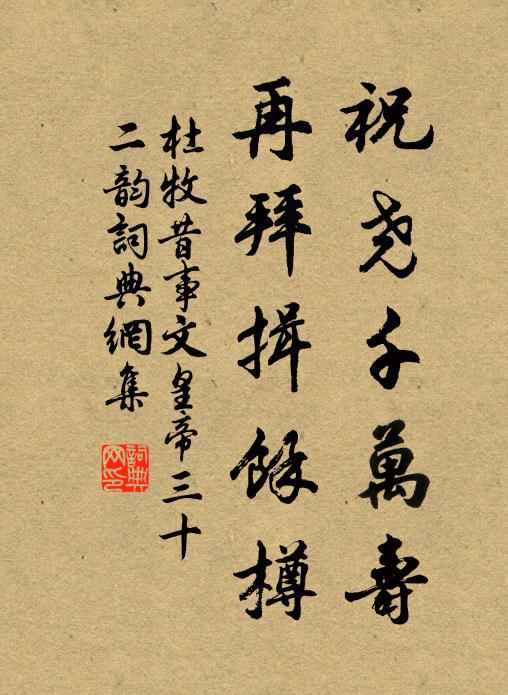 祝尧千萬壽
再拜揖餘樽
杜牧昔事文皇帝三十
二韵詞典網集
詞典
网印